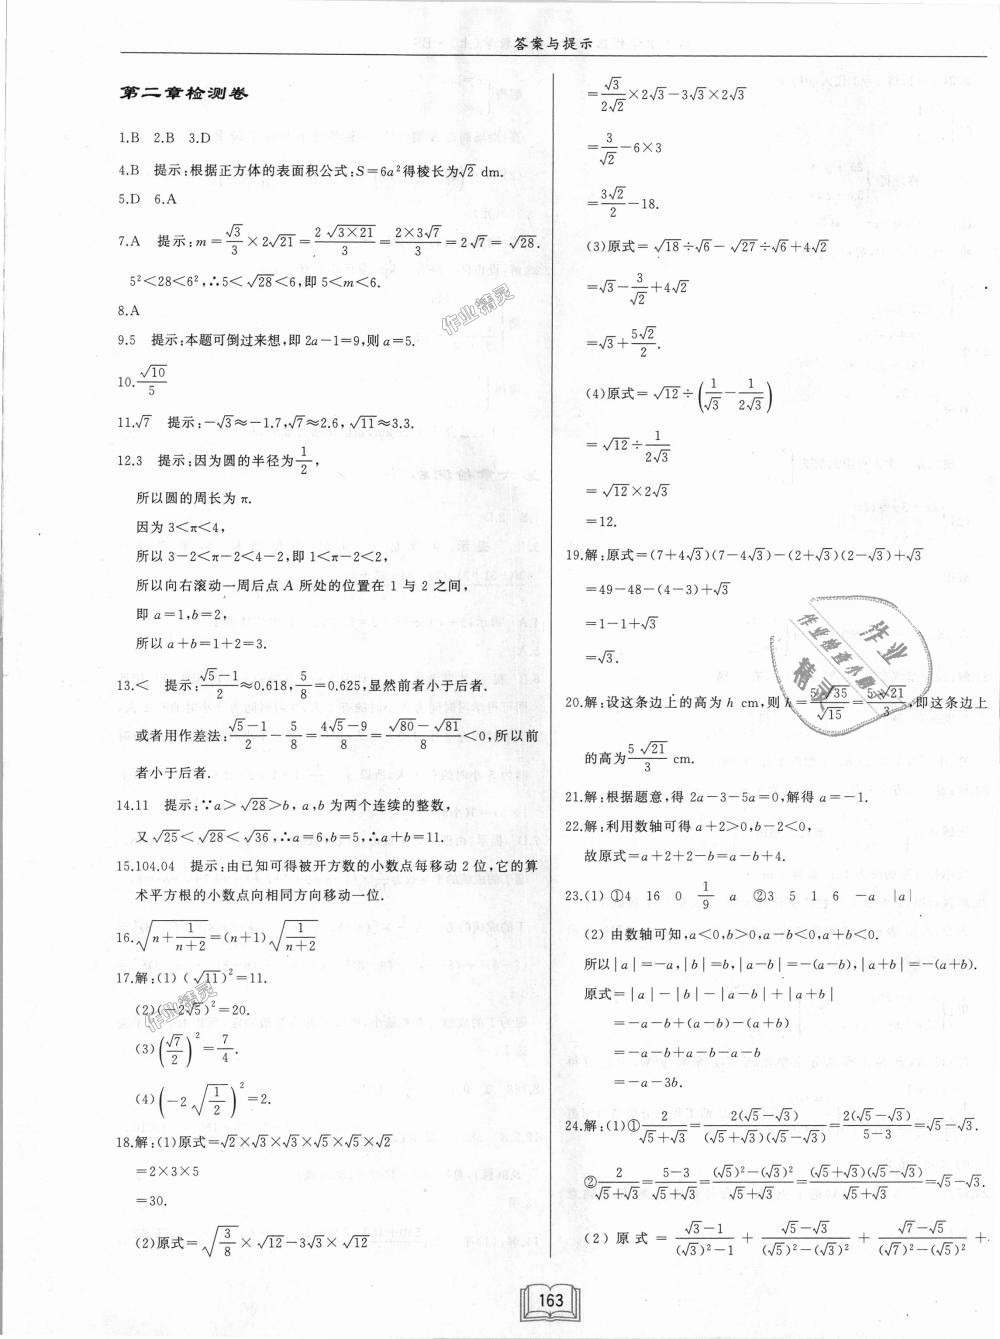 答案与提示
第二章检测卷
1.B 2.B 3.D
4.B 提示:根据正方体的表面积公式:S=6a²得棱长为√2 dm.
5.D 6.A
7.A 提示:m=√3/3×2√21=2√(3×21)/3=2×3√7/3=2√7=√28.
5²<28<6²,∴5<√28<6,即5<m<6.
8.A
9.5 提示:本题可倒过来想,即2a-1=9,则a=5.
10.√10/5
11.√7 提示:-√3≈-1.7,√7≈2.6,√11≈3.3.
12.3 提示:因为圆的半径为1/2,
所以圆的周长为π.
因为3<π<4,
所以3-2<π-2<4-2,即1<π-2<2,
所以向右滚动一周后点A所处的位置在1与2之间,
即a=1,b=2,
所以a+b=1+2=3.
13.< 提示:(√5-1)/2≈0.618,5/8=0.625,显然前者小于后者.
或者用作差法:(√5-1)/2-5/8=(4√5-9)/8=(√80-√81)/8<0,所以前
者小于后者.
14.11 提示:∵a>√28>b,a,b为两个连续的整数,
又√25<√28<√36,∴a=6,b=5,∴a+b=11.
15.104.04 提示:由已知可得被开方数的小数点每移动2位,它的算
术平方根的小数点向相同方向移动一位.
16.√(n+1/(n+2))=(n+1)√(1/(n+2))
17.解:(1)(√11)²=11.
(2)(-2√5)²=20.
(3)(√7/2)²=7/4.
(4)(-2√(1/2))²=2.
18.解:(1)原式=√2×√3×√3×√5×√5×√2
=2×3×5
=30.
(2)原式=√(3/8)×√12-3√3×√12
=√3/(2√2)×2√3-3√3×2√3
=3/√2-6×3
=3√2/2-18.
(3)原式=√18÷√6-√27÷√6+4√2
=√3-3/√2+4√2
=√3+5√2/2.
(4)原式=√12÷(1/√3-1/(2√3))
=√12÷1/(2√3)
=√12×2√3
=12.
19.解:原式=(7+4√3)(7-4√3)-(2+√3)(2-√3)+√3
=49-48-(4-3)+√3
=1-1+√3
=√3.
20.解:设这条边上的高为h cm,则h=5√35/√15=5√21/3,即这条边上
的高为5√21/3 cm.
21.解:根据题意,得2a-3-5a=0,解得a=-1.
22.解:利用数轴可得a+2>0,b-2<0,
故原式=a+2+2-b=a-b+4.
23.(1)①4 16 0 1/9 a ②3 5 1 6 -a |a|
(2)由数轴可知,a<0,b>0,a-b<0,a+b<0.
所以|a|=-a,|b|=b,|a-b|=-(a-b),|a+b|=-(a+b).
原式=|a|-|b|-|a-b|+|a+b|
=-a-b+(a-b)-(a+b)
=-a-b+a-b-a-b
=-a-3b.
24.解:(1)①2/(√5+√3)=2(√5-√3)/((√5+√3)(√5-√3))=2(√5-√3)/(5-3)=√5-√3.
②2/(√5+√3)=(5-3)/(√5+√3)=((√5)²-(√3)²)/(√5+√3)=(√5+√3)(√5-√3)/(√5+√3)=√5-√3.
(2)原式=(√3-1)/((√3)²-1)+(√5-√3)/((√5)²-(√3)²)+(√7-√5)/((√7)²-(√5)²)+
163
作业精灵
作业精灵
作业
作业检查小助手
精灵